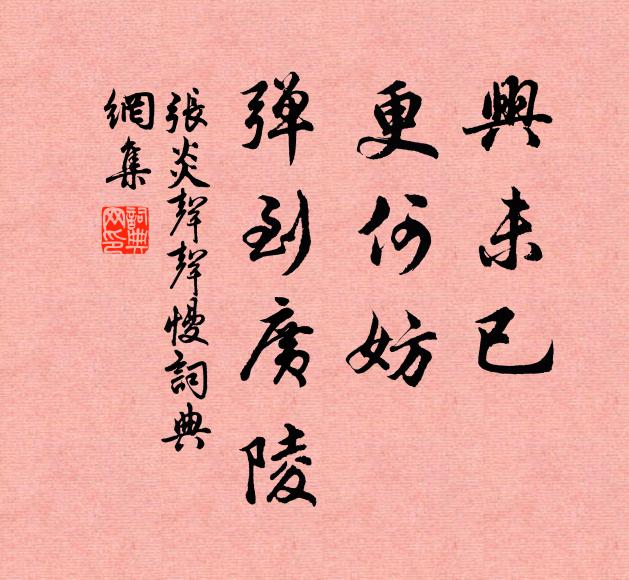 興未已
更何妨
弾到廣陵
張炎聲聲慢詞典
網集
詞典
網印